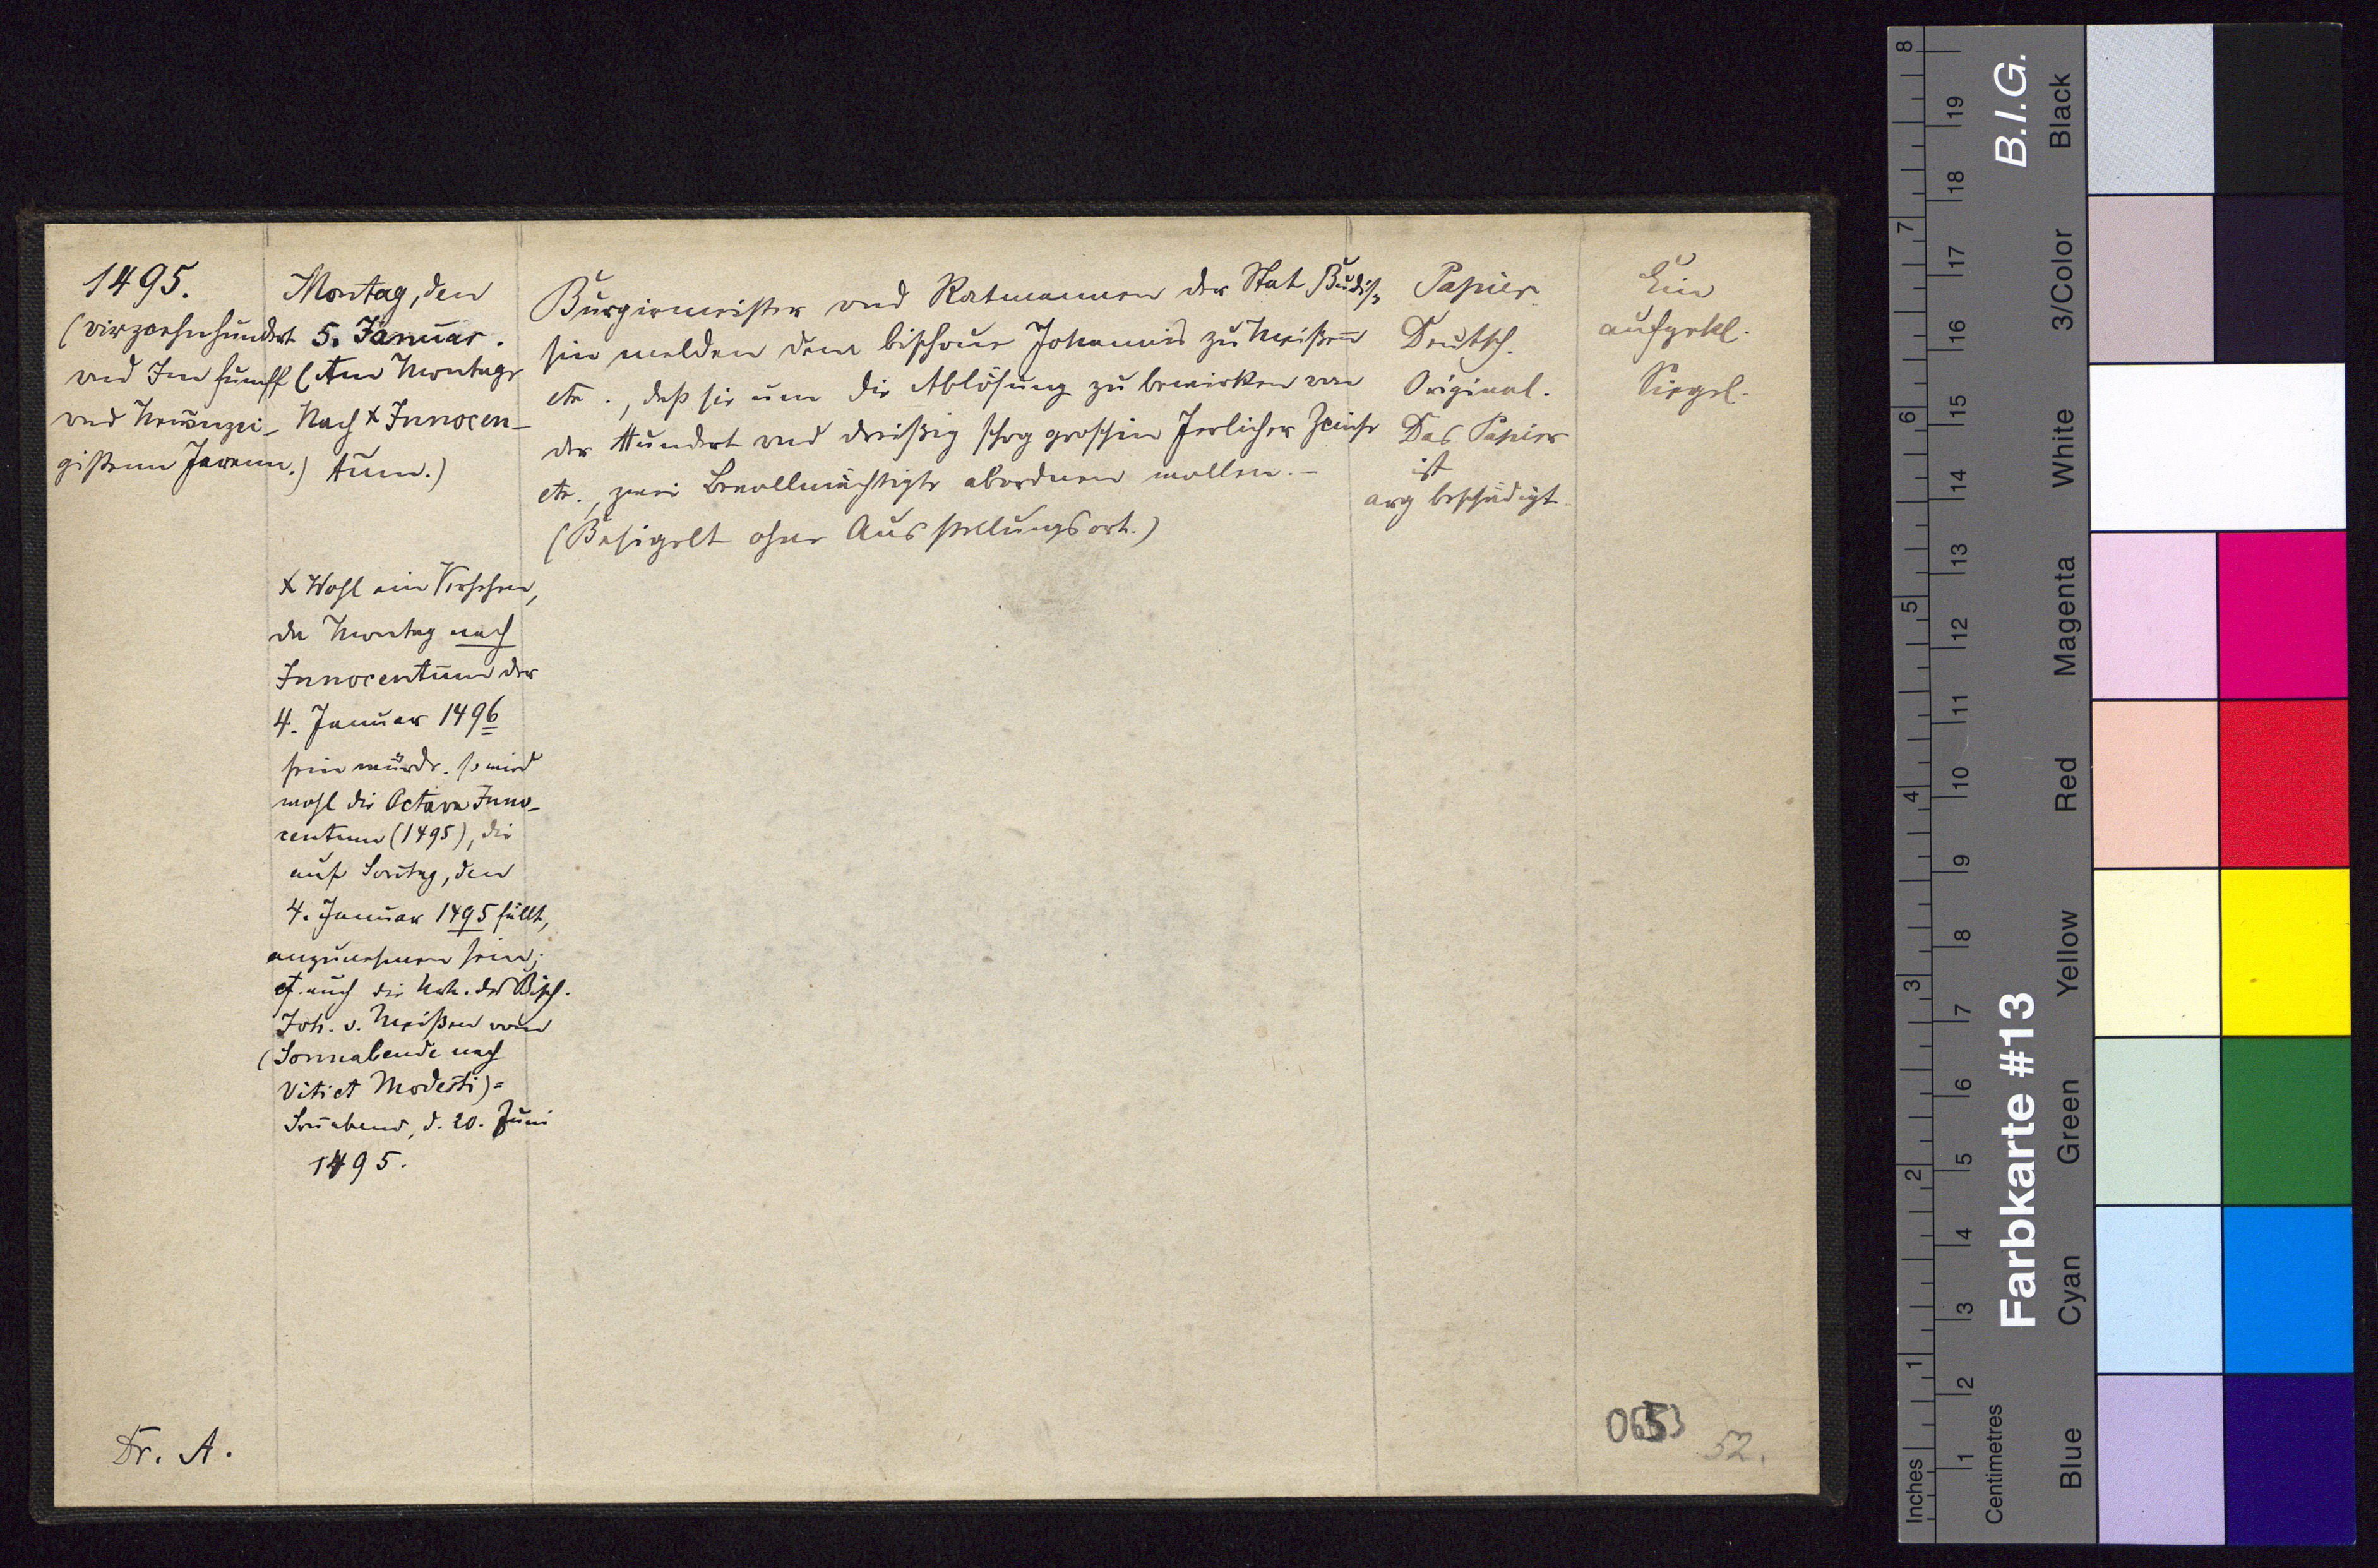 1495.
(vierzcehnhundert
und Im funff
und Neunzci-
gisten Jarenn.)
Montag, den
5. Januar.
(Am Montage
Nach x Innocen-
tum.)
x Wohl ein Versehen,
da Montag nach
Innocentum der
4. Januar 1496
sein würde. So wird
wohl die Octava Inno-
centum (1495), die
auf Sontag, den
4. Januar 1495 fällt,
anzunehmen sein;
cf. auch die Urk. des Bisch.
Joh. v. Meißen vom
(Sonnabende nach
Viti et Modesti) =
Sonabend, d. 20. Juni
1495.
Burgirmeister und Ratmannen der Stat Budis-
sin melden dem bischoue Johannis zu Meißen
etc., daß sie um die Ablösung zu bewirken von
der Hundert und dreißig schog groschin Jerlicher Zcinse
etc., zwei Bevollmächtigte abordnen wollen. -
(Besigelt ohne Ausstellungsort.)
Papier.
Deutsch.
Original.
Das Papier
ist
arg beschädigt.
Ein
aufgekl.
Siegel.
Dr. A.
52.
Inches 1 2 3 4 5 6 7 8
Centimetres 1 2 3 4 5 6 7 8 9 10 11 12 13 14 15 16 17 18 19
Farbkarte #13 B.I.G.
Blue Cyan Green Yellow Red Magenta White 3/Color Black